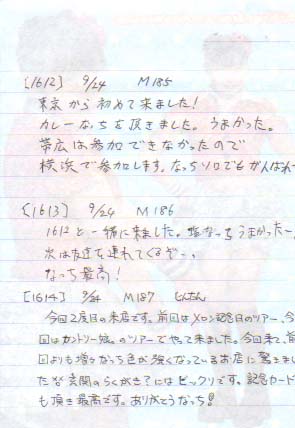 [1612] 9/24 M185
東京から初めて来ました!
カレーなっちを頂きました。うまかった。
帯広は参加できなかったので
横浜で参加します。なっちソロでもがんばれ
[1613] 9/24 M186
1612と一緒に来ました。塩なっちうまかったー
次は友達を連れてくるぞ・・
なっち最高!
[1614] 9/24 M187 じんたん
今回2度目の来店です。前回はメロン記念日のツアー、今
回はカントリー娘。のツアーでやって来ました。今回来て、前
回よりも増々なっち色が強くなっているお店に驚きまし
た。玄関のらくがき?にはビックリです。記念カード
も頂き最高です。ありがとうなっち!